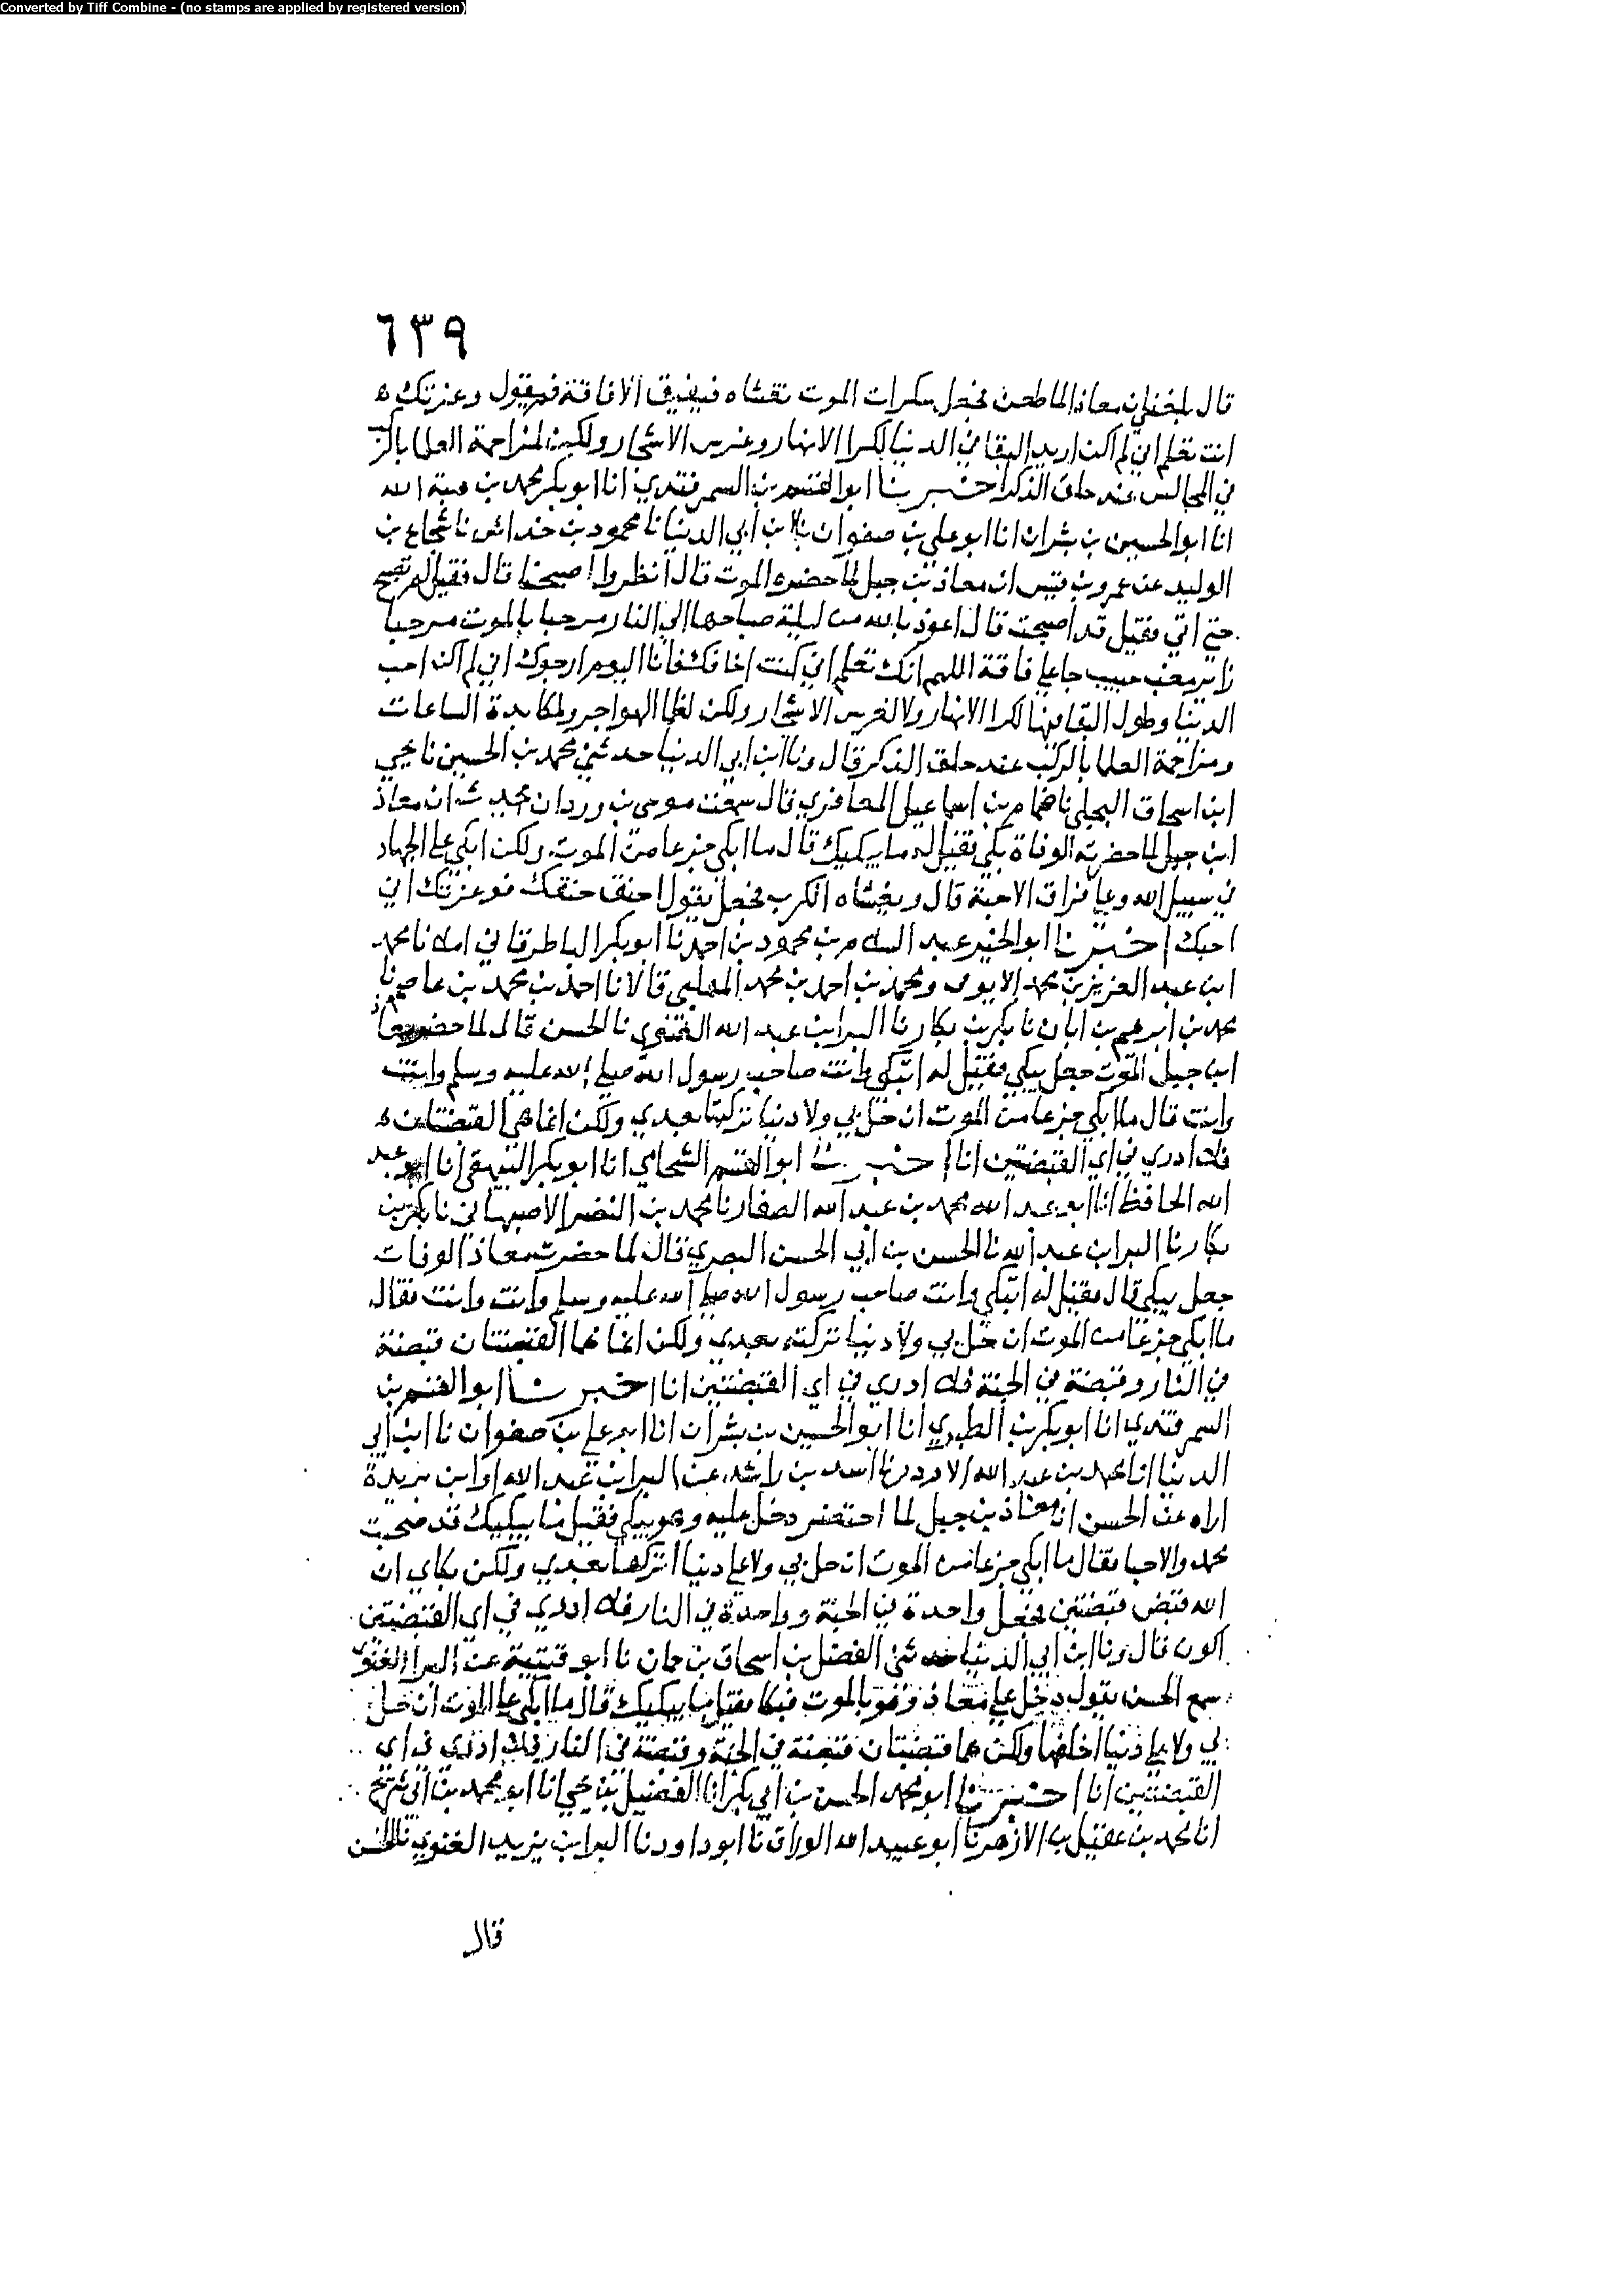 Converted by Tiff Combine - (no stamps are applied by registered version)
٦٣٩
قال بلغني ان معاذا لما طعن فجعل سكرات الموت تغشاه فيفيق الافاقة فيقول وعزتك
انت تعلم اني لم اكن اريد البقا في الدنيا لكرا الانهار وغرس الاشجار ولكن لمزاحمة العلما بالركب
في المجالس عند حلق الذكر اخبرنا ابو القسم بن السمرقندي انا ابو بكر محمد بن هبة الله
انا ابو الحسين بن بشران انا ابو علي بن صفوان نا ابن ابي الدنيا نا محمود بن خداش نا شجاع بن
الوليد عن عمرو بن قيس ان معاذ بن جبل لما حضره الموت قال انظروا اصبحنا قال فقيل لم تصبح
حتى اتي فقيل قد اصبحت قال اعوذ بالله من ليلة صباحها الى النار مرحبا بالموت مرحبا
زاير مغب حبيب جا على فاقة اللهم انك تعلم اني كنت اخافك فانا اليوم ارجوك اني لم اكن احب
الدنيا وطول البقا فيها لكرا الانهار ولا لغرس الاشجار ولكن لظما الهواجر ولمكابدة الساعات
ومزاحمة العلما بالركب عند حلق الذكر قال ونا ابن ابي الدنيا حدثني محمد بن الحسين نا يحيى
ابن اسحاق البجلي نا ضمام بن اسماعيل المعافري قال سمعت موسى بن وردان يحدث ان معاذ
ابن جبل لما حضرته الوفاة بكى فقيل له ما يبكيك قال ما ابكي جزعا من الموت ولكن ابكي على الجهاد
في سبيل الله وعلى فراق الاحبة قال ويغشاه الكرب فجعل يقول اخنق خنقك فوعزتك اني
احبك اخبرنا ابو الخير عبد السلام بن محمود بن احمد نا ابو بكر الباطرقاني املا نا محمد
ابن عبد العزيز بن محمد ومحمد بن احمد بن محمد قالا نا احمد بن محمد بن عاصم نا
محمد بن ابرهيم بن ابان نا بكر بن بكار نا البرا بن عبد الله الغنوي نا الحسن قال لما حضر معاذ
ابن جبل الموت جعل يبكي فقيل له اتبكي وانت صاحب رسول الله صلى الله عليه وسلم وانت
وانت قال ما ابكي جزعا من الموت ان حل بي ولا دنيا تركتها بعدي ولكن انما هي القبضتان
فلا ادري في اي القبضتين انا اخبرنا ابو القسم الشحامي انا ابو بكر البيهقي انا ابو عبد
الله الحافظ انا ابو عبد الله محمد بن عبد الله الصفار نا محمد بن النضر الاصبهاني نا بكر بن
بكار نا البرا بن عبد الله نا الحسن بن ابي الحسن البصري قال لما حضرت معاذ الوفات
جعل يبكي قال فقيل له اتبكي وانت صاحب رسول الله صلى الله عليه وسلم وانت وانت فقال
ما ابكي جزعا من الموت ان حل بي ولا دنيا تركته بعدي ولكن انما هما القبضتان قبضة
في النار وقبضة في الجنة فلا ادري في اي القبضتين انا اخبرنا ابو القسم بن
السمرقندي انا ابو بكر بن الطبري انا ابو الحسين بن بشران انا ابو علي بن صفوان نا ابن ابي
الدنيا انا محمد بن عبد الله نا اسد بن راشد عن البرا بن عبد الله او ابن يزيد
اراه عن الحسن ان معاذ بن جبل لما احتضر دخل عليه وهو يبكي فقيل ما يبكيك قد صحبت
محمد والاحبا فقال ما ابكي جزعا من الموت ان حل بي ولا على دنيا اتركها بعدي ولكن بكاي ان
الله قبض قبضتين فجعل واحدة في الجنة وواحدة في النار فلا ادري في اي القبضتين
اكون قال ونا ابن ابي الدنيا حدثني الفضل بن اسحاق بن حيان نا ابو قتيبة عن البرا الغنوي
سمع الحسن يقول دخل على معاذ وهو بالموت فبكا فقيل ما يبكيك قال ما ابكي على الموت ان حل
بي ولا على دنيا اخلفها ولكن هما قبضتان قبضة في الجنة وقبضة في النار فلا ادري في اي
القبضتين انا اخبرنا ابو محمد الحسن بن ابي بكر انا الفضيل بن يحيى انا ابو محمد بن ابي شريح
انا محمد بن عقيل بن الازهر نا ابو عبيد الله الوراق نا ابو داود نا البرا بن يزيد الغنوي نا الحسن
قال